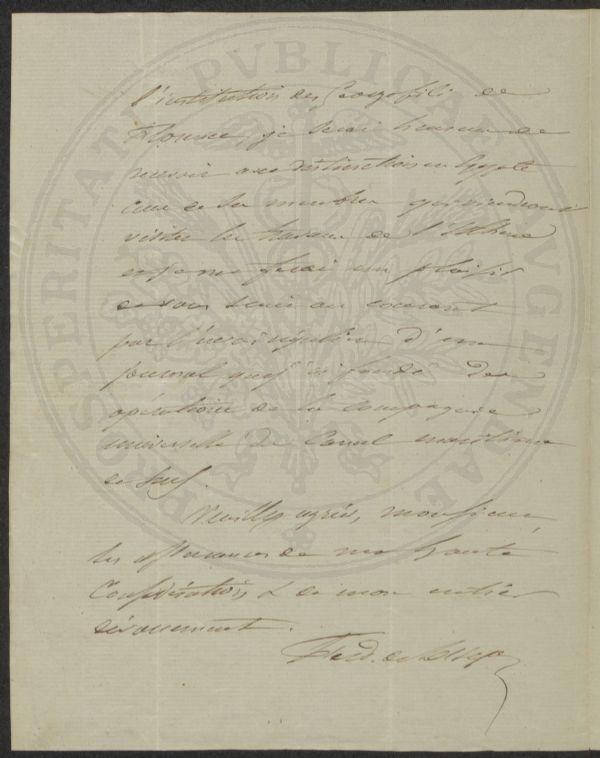 PROSPERITATI PVBLICAE AVGENDAE
l'institution des Georgofili de
Florence je serai heureux de
recevoir avec distinction en Egypte
ceux de ses membres qui viendront
visiter les travaux de l'Isthme
et je me ferai un plaisir
de vous tenir au courant
par l'envoi régulier d'un
journal que j'ai fondé des
opérations de la Compagnie
universelle du Canal maritime
de Suez.
Veuillez agréer, monsieur,
les assurances de ma haute
Considération & de mon entier
dévouement.
Ferd. de Lesseps